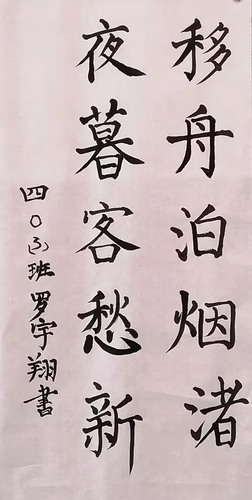 移舟泊烟渚
夜暮客愁新
四〇班罗宇翔書